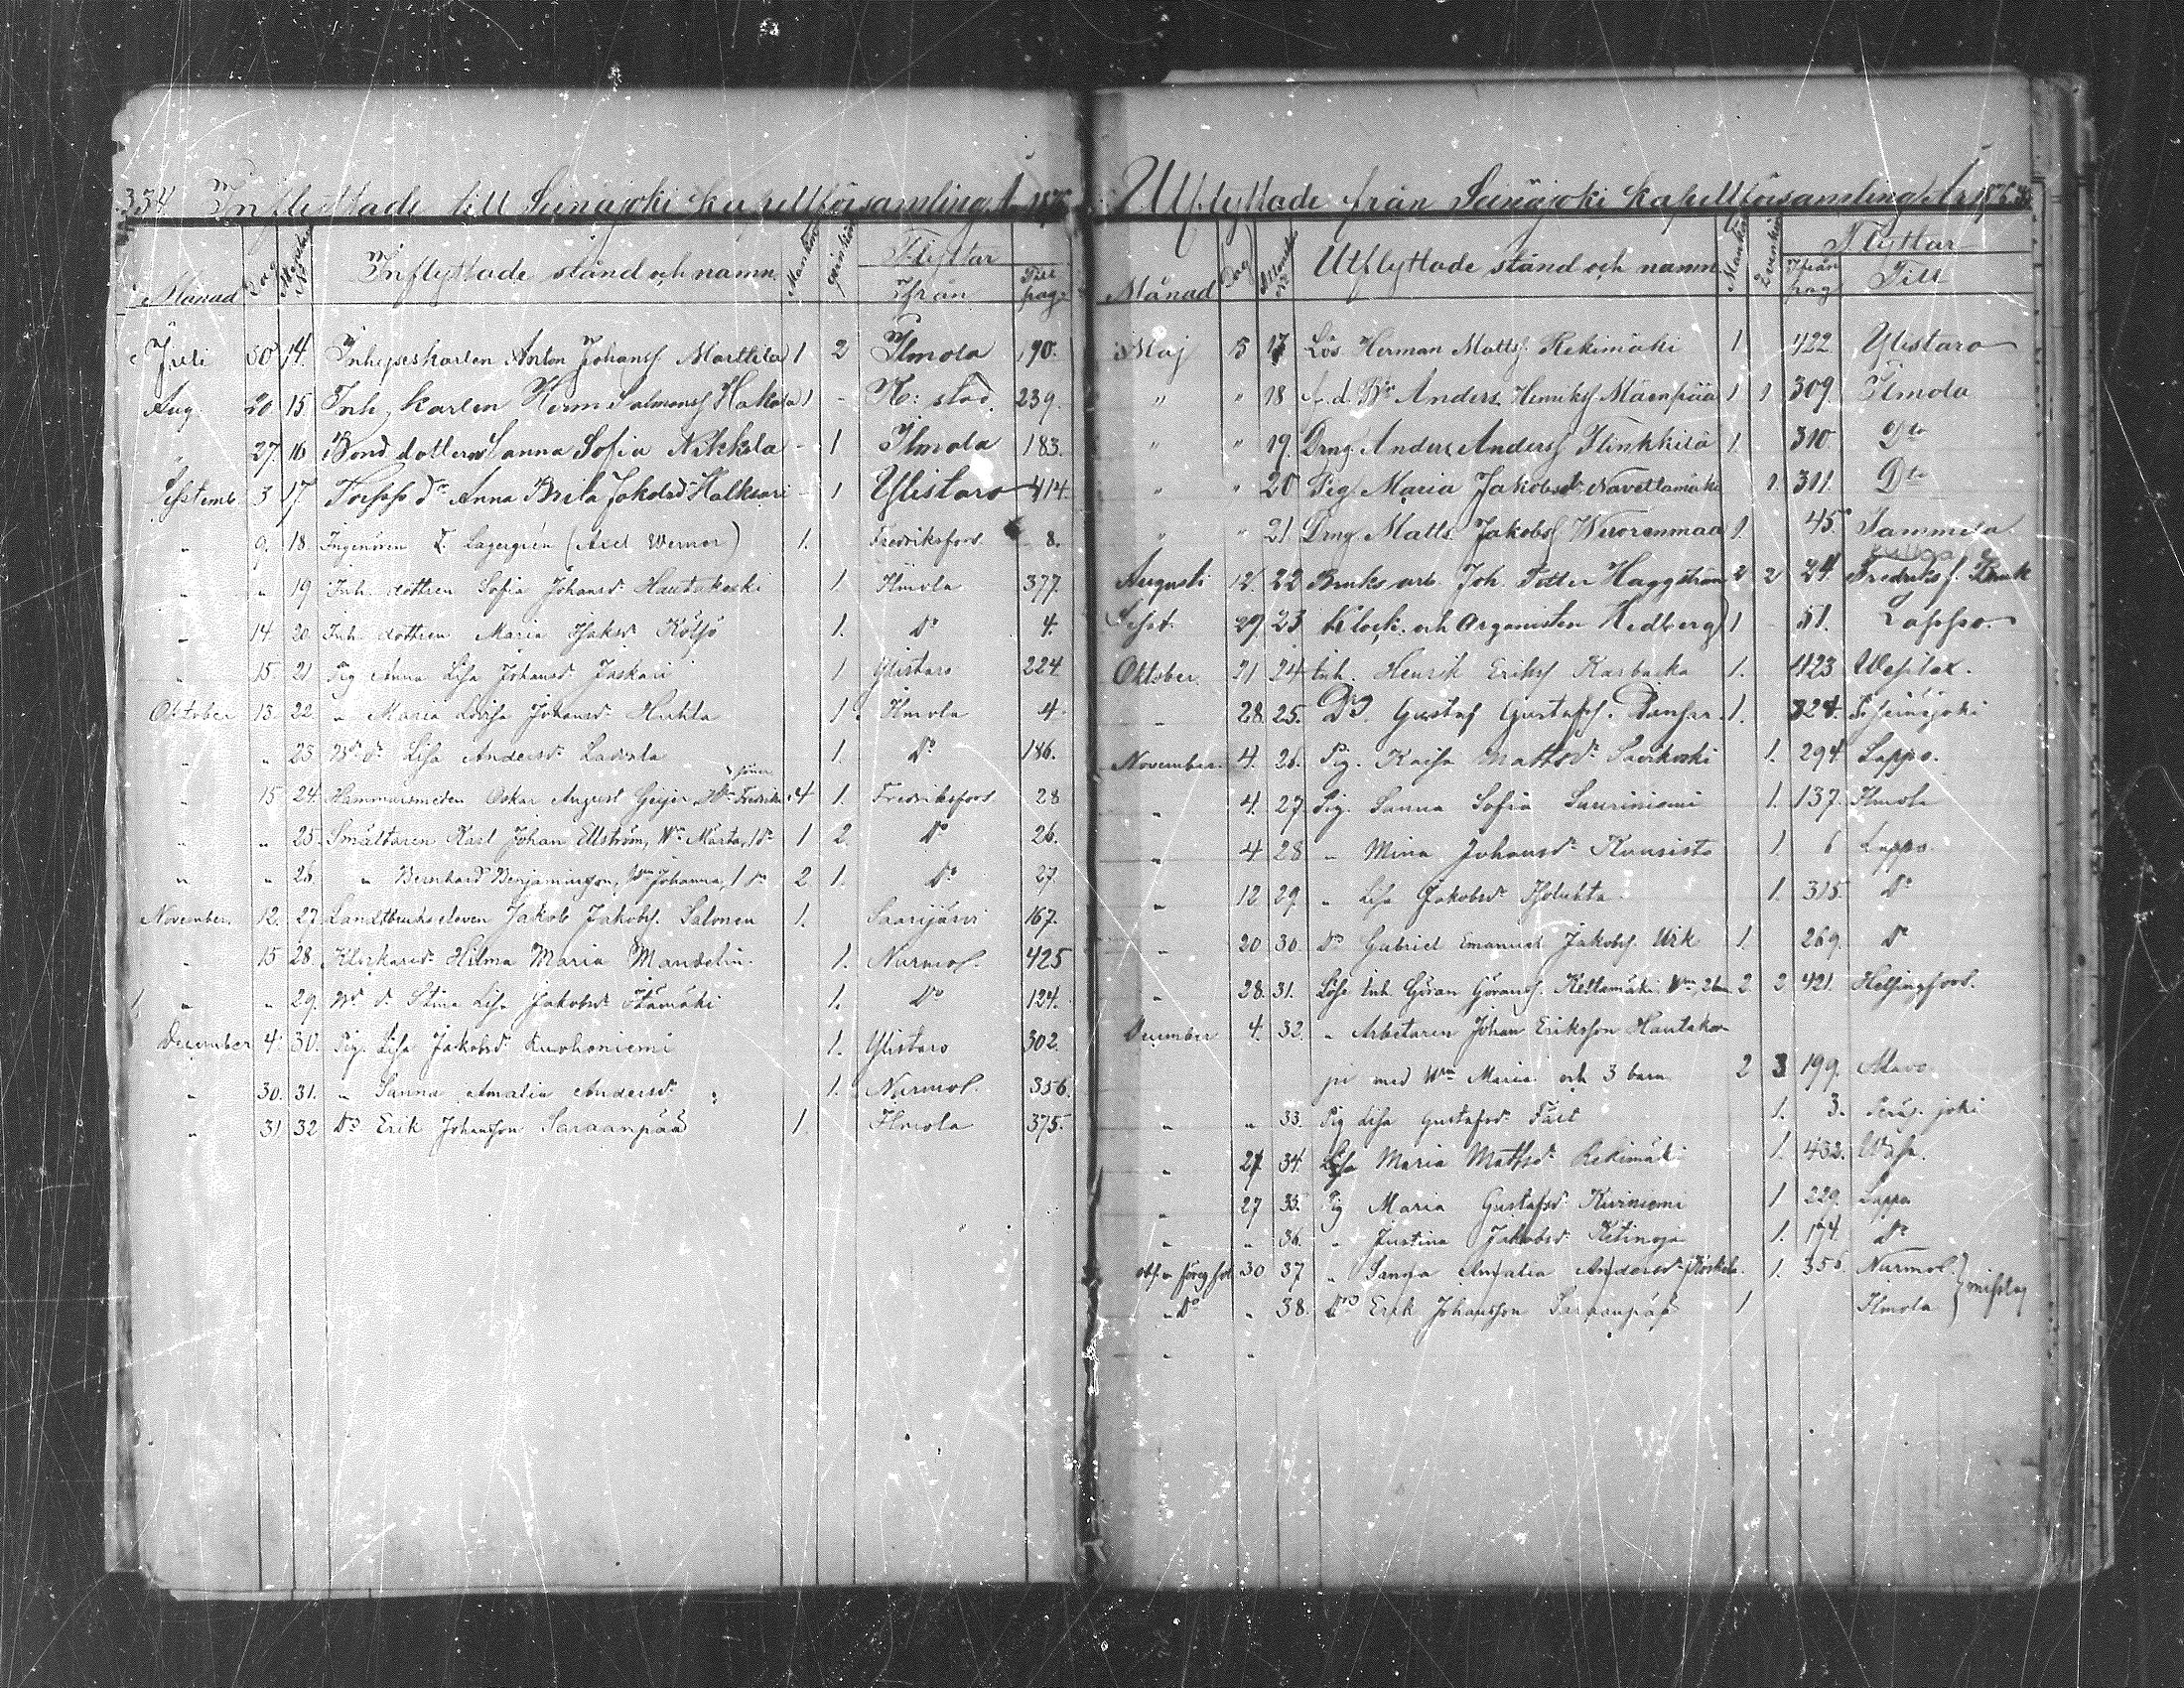 334 Inflyttade till Seinäjoki kapellförsamling År 187
Månad Dag Attestens No Inflyttade stånd och namn Mankön Qvinkön Flyttar Ifrån Till pag.
Juli 30 14. Inhyseskarlen Anton Johanss. Marttila 1 2 Ilmola 190.
Aug. 20 15 Inh. karlen Herm. Salomonss 1 - K: stad 239.
" 27. 16 Bond dottern Sanna Sofia Nikkola - 1 Ilmola 183.
Septemb. 3 17. Torpar dr Anna Brita Jakobsdr - 1 Ylistaro 414.
" 9. 18. Ingeniören Z. Lagergrén (Axel Werner) 1. Fredriksfors 8.
" " 19 Inh. dottren Sofia Johansdr Hautakoski 1. Ilmola 377.
" 14. 20. Inh. dottren Maria Isaksdr Kötsö 1. Do 4.
" 15 21 Pig Anna Lisa Johansdr Jaskari 1 Ylistaro 224
Oktober 13. 22. " Maria Lovisa Johansdr Huhta 1. Ilmola 4.
" " 23. Bd dr Lisa Andersdr Ladvala 1. Do 186.
" 15 24. Hammarsmeden Oskar August Geijer, Hu Fredrika, 3 söner 4 1. Fredriksfors 28
" " 25. Smältaren Karl Johan Ellström, Hu Märta, 1 dr 1 2 Do 26.
" " 26. " Bernhard Benjaminsson, Hu Johanna, 1 sn 2 1. Do 27.
November. 12. 27. Landtbrukseleven Jakob Jakobss. Salonen 1. Saarijärvi 167.
" 15 28. Klockaredr Hilma Maria Mandelin. 1. Nurmo 425
" " 29. Bd dr Stina Lisa Jakobsdr Itämäki 1. Do 124.
December 4. 30. Pig. Lisa Jakobsdr Ruohoniemi 1. Ylistaro 302.
" 30. 31. " Sanna Amalia Andersdr 1. Nurmo 356.
" 31 32 Dr. Erik Johansson Saraanpää 1. Ilmola 375.
Utflyttade från Seinäjoki kapellförsamling År 1876
Månad Dag Attestens No Utflyttade stånd och namn Mankön Qvinkön Flyttar Ifrån pag Till
Maj 13 17 Lös. Herman Mattss. Rekimäki 1 422 Ylistaro
" " 18 f. d. Bd Anders Henrikss Mäenpää 1 1 309 Ilmola
" " 19. Drng. Anders Anderss Flinkkilä 1. 310 Dto
" " 20 Pig. Maria Jakobsdr Navettamäki 1. 311. Dto
" " 21. Drng. Matts Jakobss Wuorenmaa 1. 45 Jammela Kulla
Augusti 12. 22 Bruks arb. Joh. Petter Haggström 2 2 24. Fredriksf. Bruk
Sept. 29 23 Klock. och Organisten Hedberg 1 - 51. Lappo.
Oktober. 21 24 Inh. Henrik Erikss Karbacka 1. 423
" 28. 25. Do. Gustaf Gustafss. Panssar 1. 324. Peräseinäjoki
November. 4. 26. Pig. Kaisa Mattsdr Savikoski 1. 294 Lappo.
" 4. 27. Pig. Sanna Sofia Lauriniemi 1. 137. Ilmola
" 4 28 " Mina Johansdr Kuusisto 1. 6 Lappo.
" 12 29. " Lisa Jakobsdr Isoluhta 1. 315. Do
" 20 30. Dr Gabriel Emanuel Jakobss. Urk 1. 269. Do
" 28. 31. Löse Inh. Göran Göranss. Keltamäki Hu, 2 barn 2 2 421. Helsingfors.
December 4. 32. " Arbetaren Johan Eriksson Hautakor-
pi med Hu Maria och 3 barn 2 3 199. Alavo.
" " 33. Pig Lisa Gustafsdr Fält 1. 3. Peräs. joki
" 27 34. Lösa Maria Mattsdr Rekimäki 1. 432. Wasa.
" 27 35. Pig Maria Gustafsdr Kiviniemi 1 229. Lappo
" " 36. " Justina Jakobsdr Ketinoja 1. 174. Do
obs. 30 37 " Sanna Amalia Andersdr Koskela. 1. 356. Nurmo } misstag
" Do " 38. Dr. Erik Johansson Saraanpää 1 Ilmola
" "